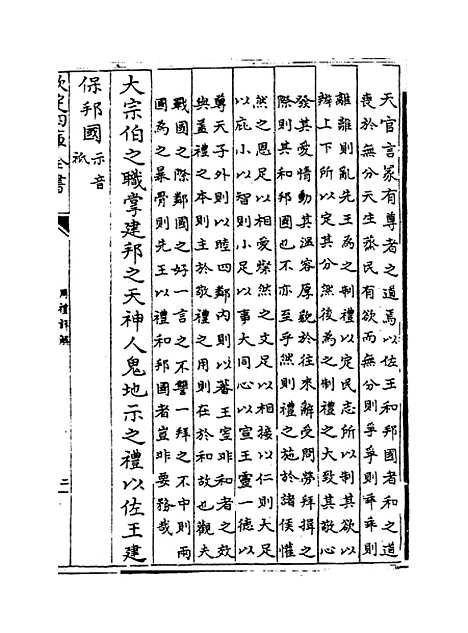 天官言冡有尊者之道焉以佐王和邦國者和之道
喪於無分天生烝民有欲而無分則爭爭則乖乖則
離離則亂先王為之制禮以定民志所以制其欲以
辨上下所以定其分然後為之制禮之大致其敬心
發其愛情動其温容厚貌於往來辭受問勞拜揖之
際則其和邦國也不亦至乎然則禮之施於諸侯懽
然之恩足以相愛粲然之文足以相接以仁則大足
以庇小以智則小足以事大同心以宣王靈一德以
尊天子外則以睦四鄰内則以蕃王室非和者之效
與蓋禮之本則主於敬禮之用則在於和故也觀夫
戰國之際鄰國之好一言之不讐一拜之不中則兩
國為之暴骨則先王以禮和邦國者豈非要務哉
大宗伯之職掌建邦之天神人鬼地示之禮以佐王建
保邦國示音祇
欽定四庫全書
周禮詳解
二